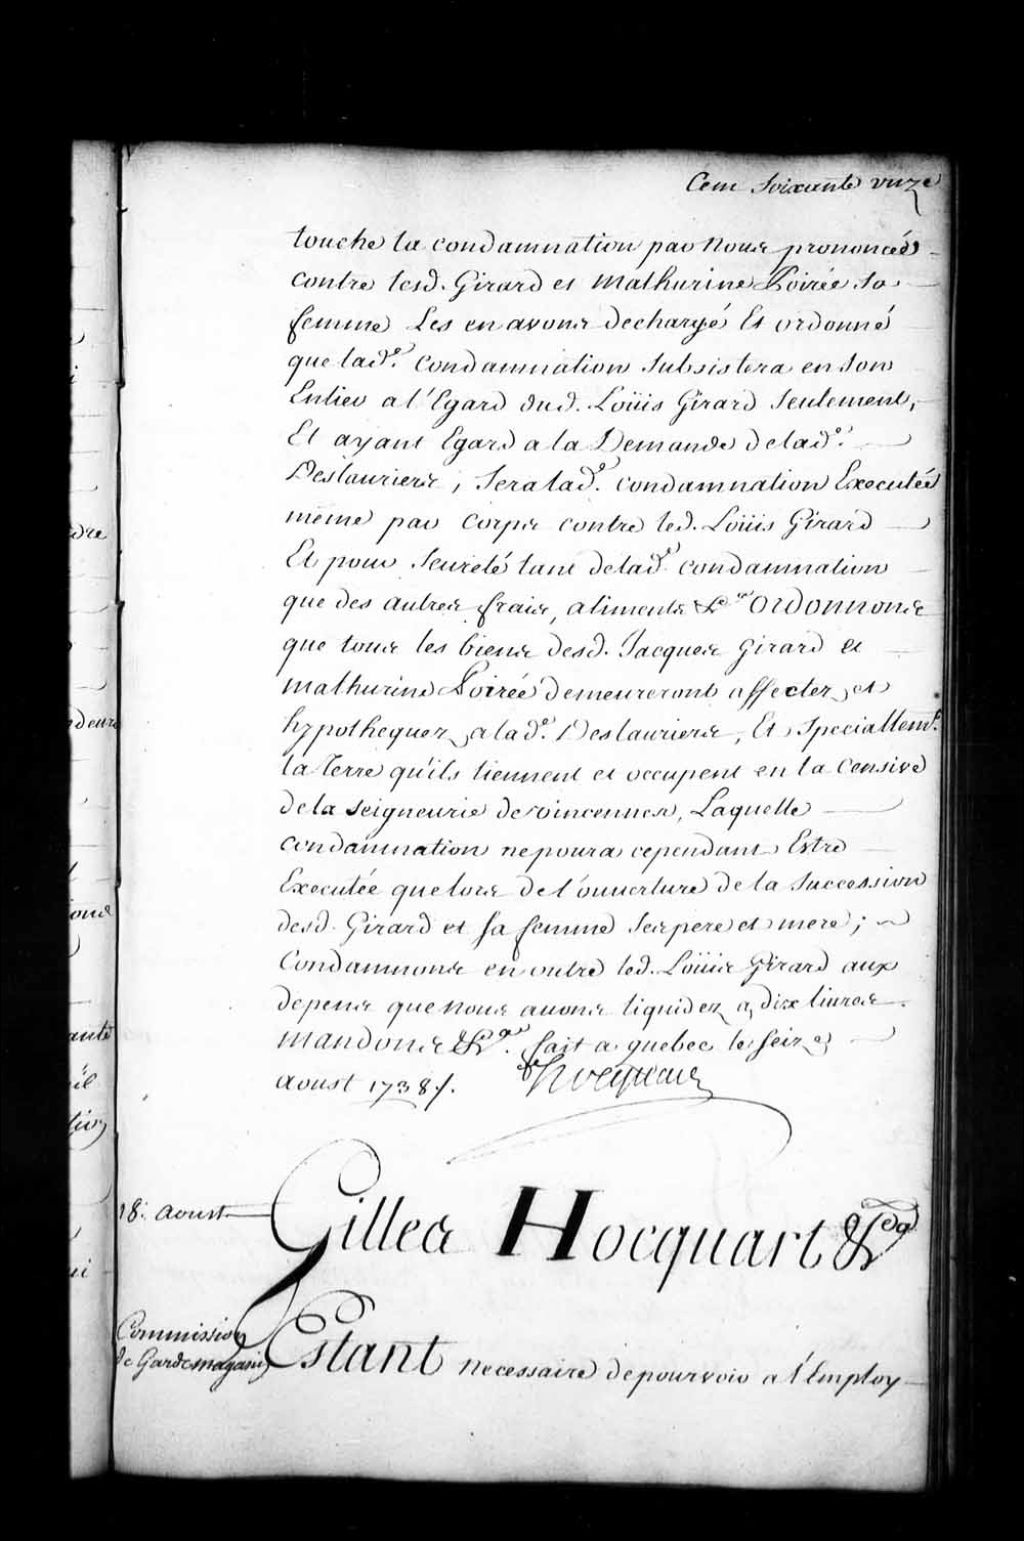 Cent Soixante unze
touche la condamnation par Nous prononcée
contre lesd. Girard et Mathurine Poirée sa
femme Les en avons dechargé Et ordonné
que lad.e Condamnation Subsistera en son
Entier a l'Egard dud. Loüis Girard Seulement,
Et ayant Egard a la Demande de lad.e
Deslauriers, Sera lad.e condamnation Executée
meme par Corps contre led. Loüis Girard
Et pour Seureté tant de lad.e condamnation
que des autres frais, aliments &.a Ordonnons
que tous les biens desd. Jacques Girard et
Mathurine Poirée demeureront affectez et
hypothequez a lad.e Deslauriers, Et Speciallem.t
la Terre qu'ils tiennent et occupent en la Censive
de la Seigneurie de vincennes, Laquelle
condamnation ne poura cependant Estre
Executée que lors de l'ouuerture de la Succession
desd. Girard et sa femme Ses pere et mere;
Condamnons en outre led. Loüis Girard aux
depens que nous auons liquidez a dix livres.
Mandons &.a fait a quebec le seize
aoust 1738 /.
Hocquart
18. aoust
Gilles Hocquart &.a
Commission
de Gardemagasin
Estant necessaire de pourvoir a l'Employ
dre
deurs
ions
ante
il
tion
ui